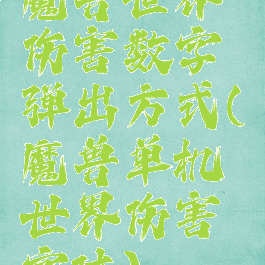 魔兽世界
伤害数字
弹出方式(
魔兽单机
世界伤害